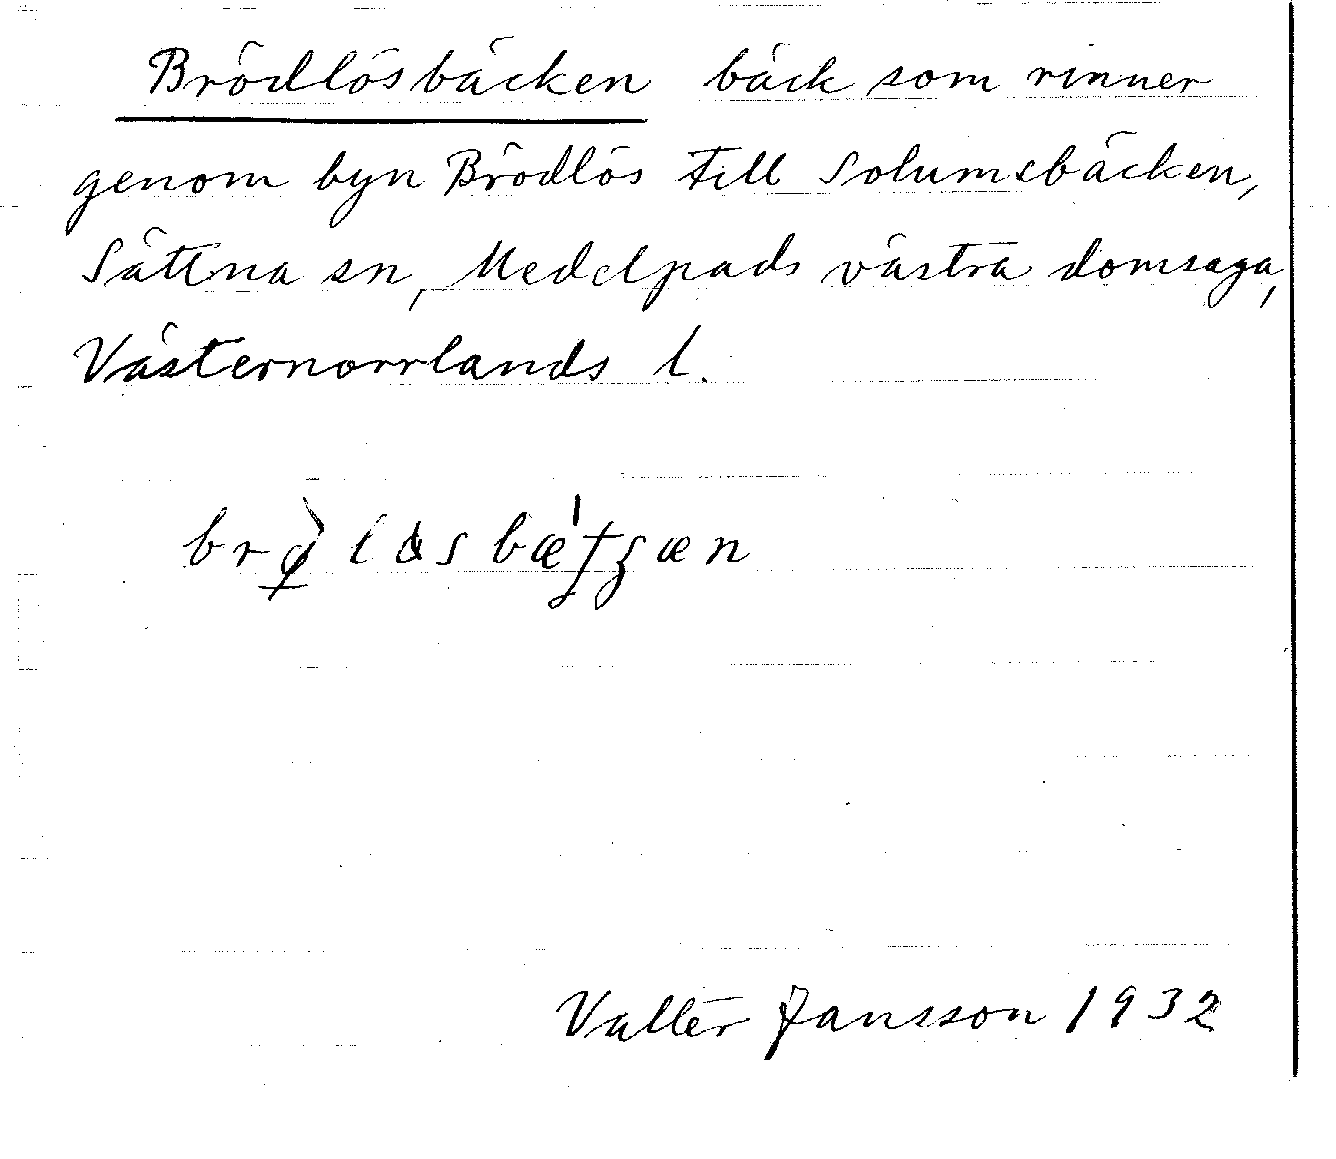 Brödlösbäcken bäck som rinner
genom byn Brödlös till Solumsbäcken,
Sättna sn, Medelpads västra domsaga,
Västernorrlands l.
Valter Jansson 1932